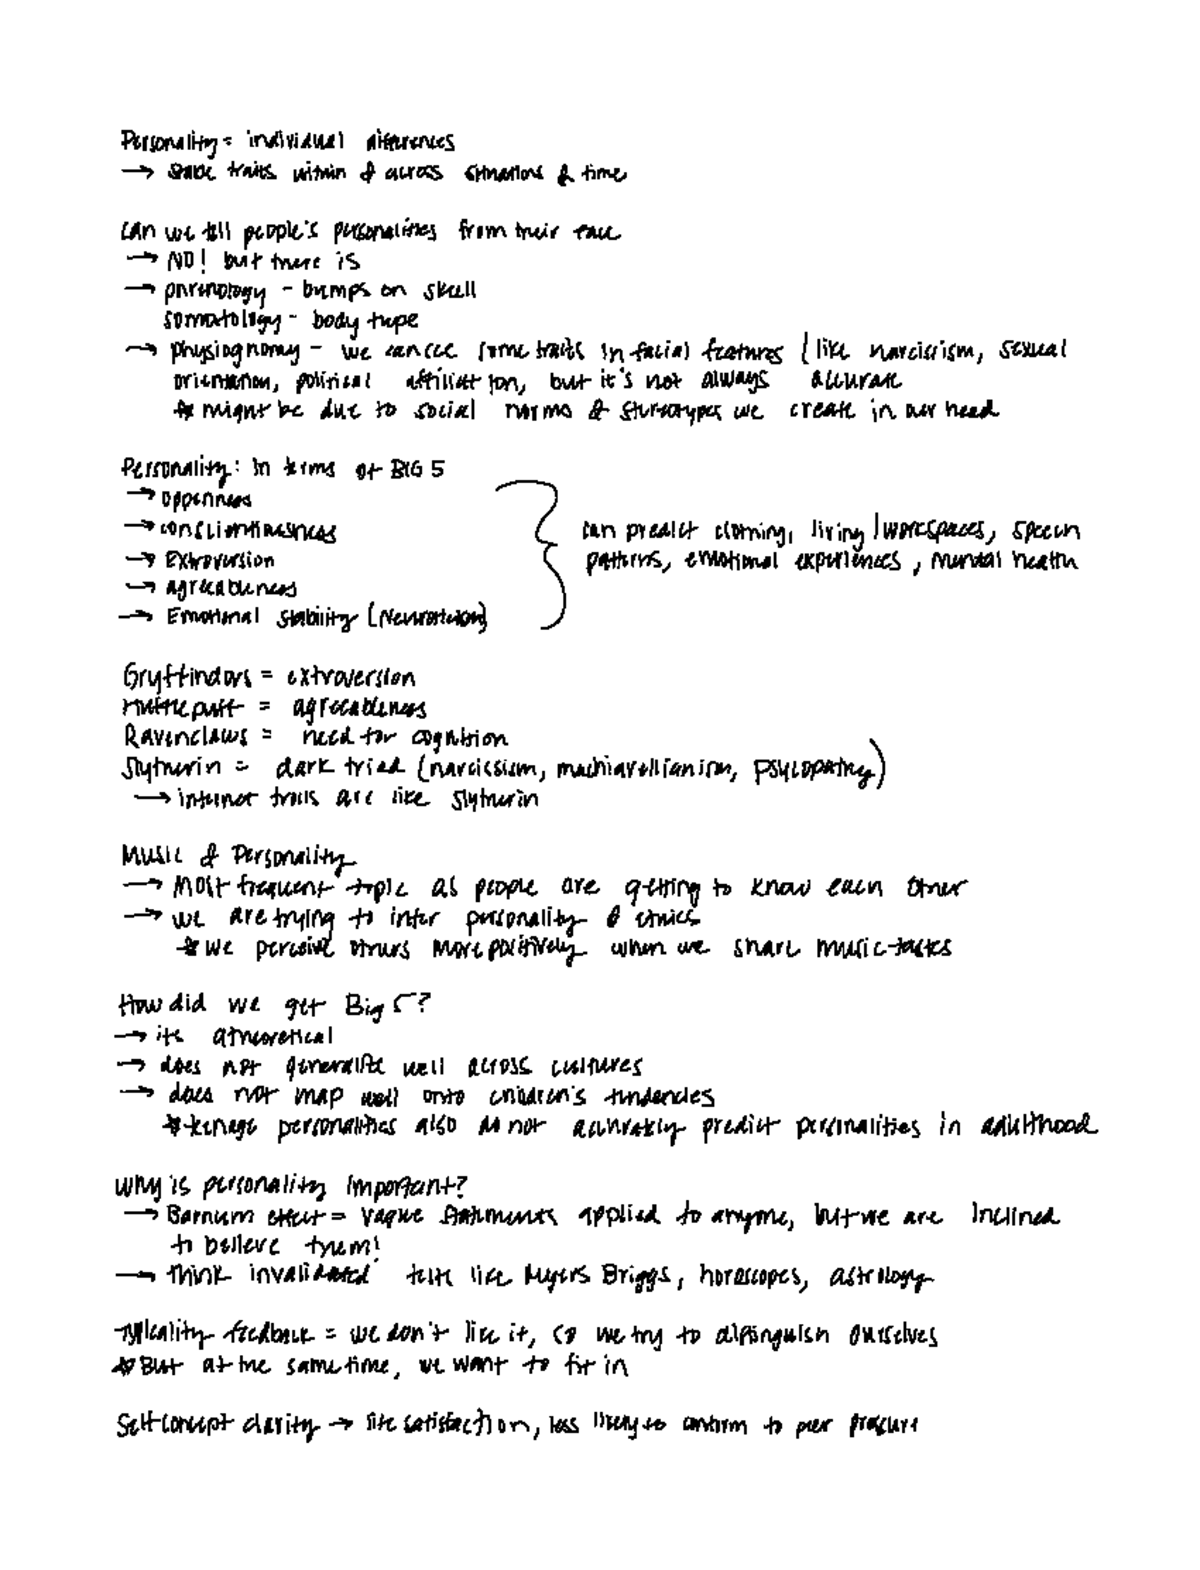 Personality = individual differences
→ stable traits within & across situations & time
Can we tell people's personalities from their face
→ NO! but there is
→ phrenology - bumps on skull
somatology - body type
→ physiognomy - we can see some traits in facial features (like narcissism, sexual
orientation, political affiliation, but it's not always accurate
* might be due to social norms & stereotypes we create in our head
Personality: in terms of BIG 5
→ oppenness
→ conscientiousness
→ Extroversion
→ agreeableness
→ Emotional stability (Neuroticism)
can predict clothing, living/workspaces, speech
patterns, emotional experiences, mental health
Gryffindors = extroversion
Hufflepuff = agreeableness
Ravenclaws = need for cognition
Slytherin = dark tried (narcissism, machiavellianism, psycopathy)
→ internet trolls are like slytherin
Music & Personality
→ Most frequent topic as people are getting to know each other
→ we are trying to infer personality & ethics
* we perceive others more positively when we share music tastes
How did we get Big 5?
→ its atheoretical
→ does not generalize well across cultures
→ does not map well onto children's tendencies
* teenage personalities also do not accurately predict personalities in adulthood
Why is personality important?
→ Barnum effect = vague statements applied to anyone, but we are inclined
to believe them!
→ think invalidated tests like Myers Briggs, horoscopes, astrology
Typicality feedback = we don't like it, so we try to distinguish ourselves
* But at the same time, we want to fit in
Self concept clarity → life satisfaction, less likely to confirm to peer pressure